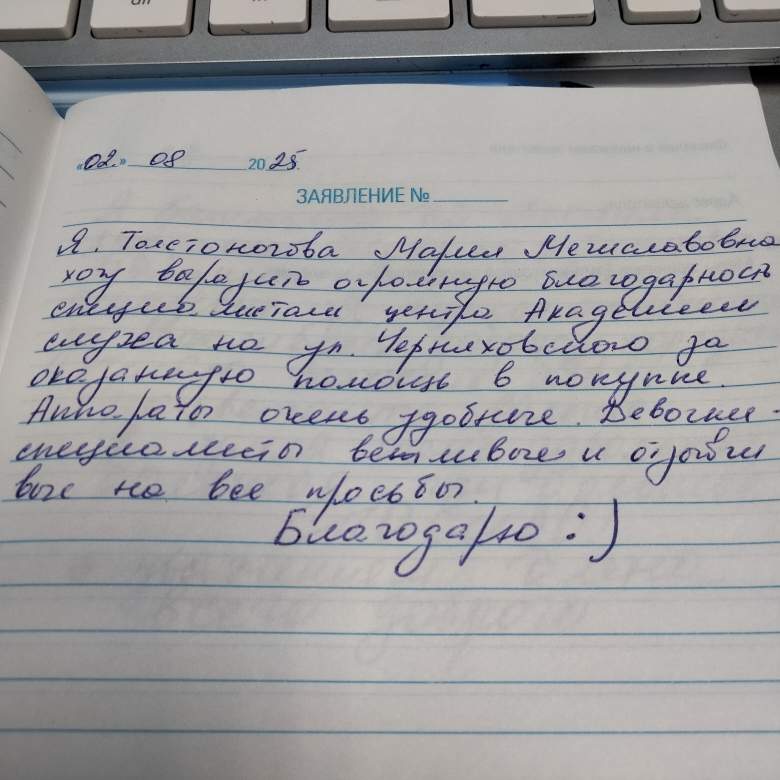 «02» 08 2025.
ЗАЯВЛЕНИЕ №
Я. Толстоногова Мария Мечиславовна
хочу выразить огромную благодарность
специалистам центра Академии
слуха на ул. Черняховского за
оказанную помощь в покупке.
Аппараты очень удобные. Девочки-
специалисты вежливые и отзывчи
вые на все просьбы.
Благодарю :)